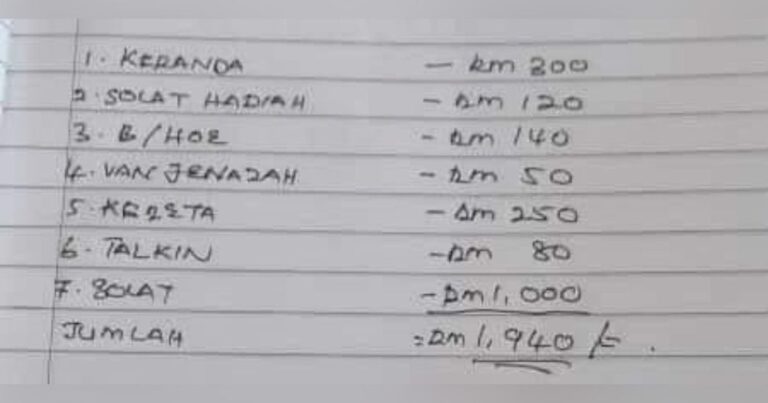 1. KERANDA - RM 300
2. SOLAT HADIAH - RM 120
3. B/HOE - RM 140
4. VAN JENAZAH - RM 50
5. KERETA - RM 250
6. TALKIN - RM 80
7. SOLAT - RM1,000
JUMLAH = RM 1,940